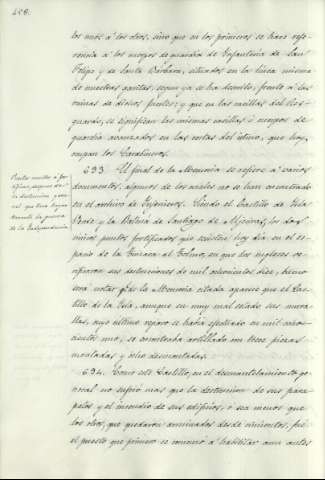 458.
los unos á los otros, sino que en los primeros se hace refe-
rencia á los cuerpos de guardia de Infantería de San
Felipe y de Santa Bárbara, situados en la línea misma
de nuestras garitas, segun ya se ha descrito, frente á las
ruinas de dichos fuertes; y que en las casillas del Res-
guardo, se significan las mismas casillas ó cuerpos de
guardia avanzados en las costas del istmo, que hoy
ocupan los Carabineros.
693. Al final de la Memoria se refiere á varios
documentos, algunos de los cuales no se han encontrado
en el archivo de Ingenieros. Siendo el Castillo de Isla
Verde y la Batería de Santiago de Algeciras, los dos
únicos puntos fortificados que existen hoy dia en el es-
pacio de la Guiacan al Tolmo, en que los ingleses ve-
rificaron sus destrucciones de mil ochocientos diez, haremos
notar que de la Memoria citada aparece que el Cas-
tillo de la Isla, aunque en muy mal estado sus mura-
llas, cuyo último reparo se habia efectuado en mil ocho-
cientos uno, se encontraba artillado con trece piezas
montadas y ocho desmontadas.
694. Como este Castillo, en el desmantelamiento ge-
neral no sufrió mas que la destruccion de sus para-
petos y el incendio de sus edificios, ó sea menos que
los otros, que quedaron arruinados desde cimientos, fué
el puesto que primero se comenzó á habilitar aun antes